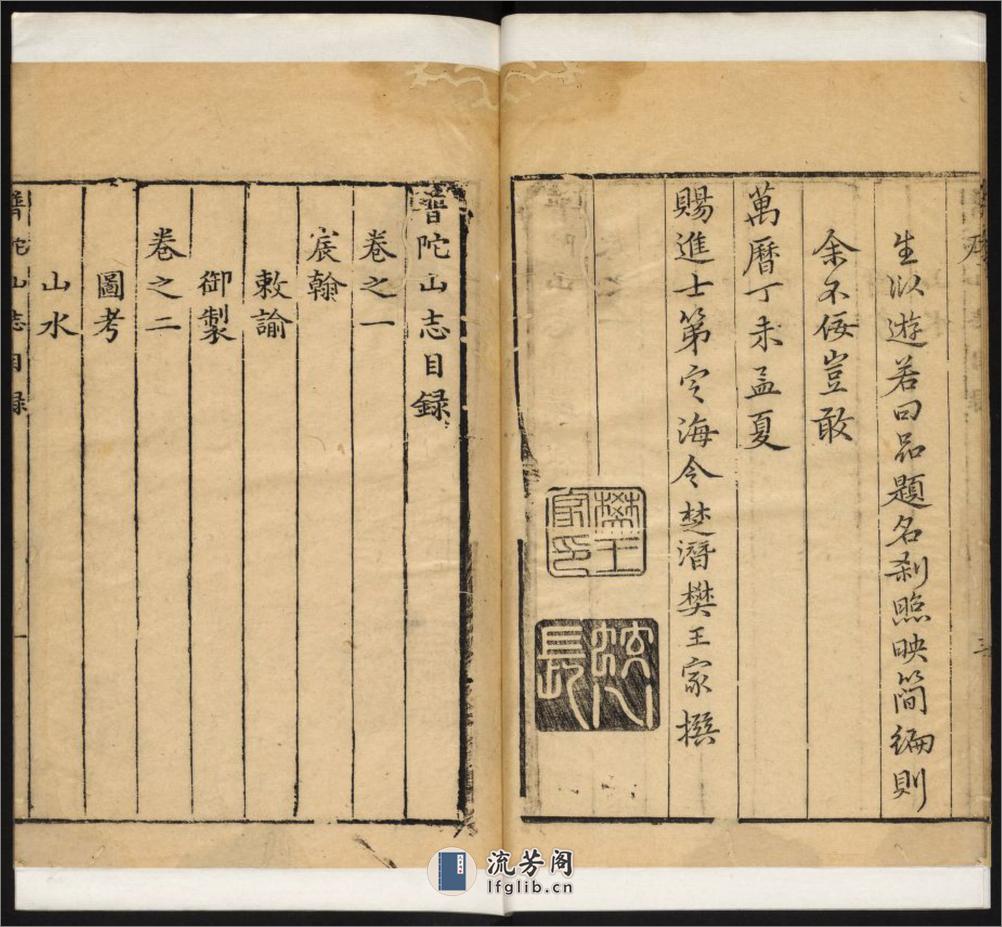 生以遊若曰品題名刹照映簡編則
余不佞豈敢
萬曆丁未孟夏
賜進士第定海令楚潛樊王家撰
樊王家印
普陀山志目録
卷之一
宸翰
敕諭
御製
卷之二
圖考
山水
普陀山志目録
一
流芳阁
lfglib.cn